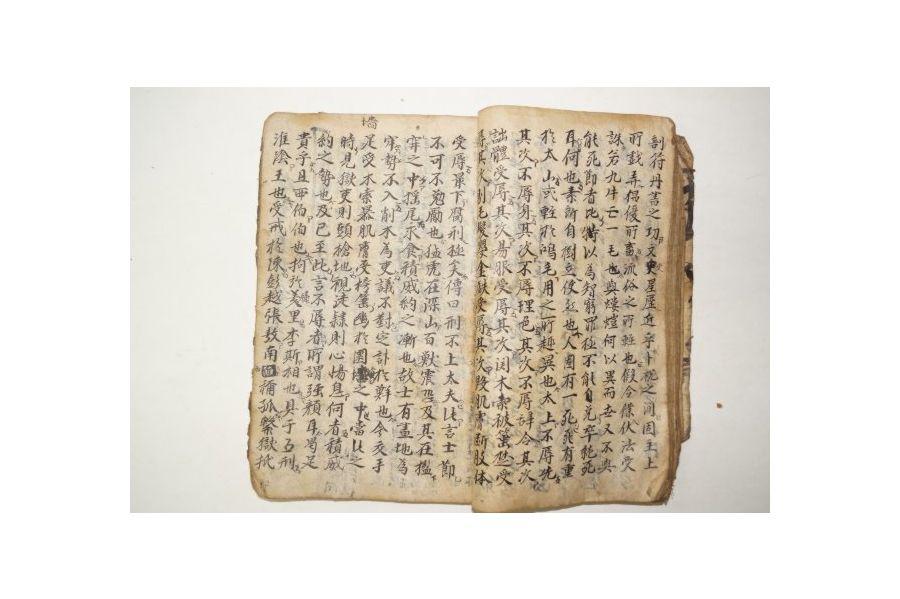 剖符丹書之功文史星歷近乎卜祝之间固主上
所戱弄倡優所畜流俗之所輕也假令僕伏法受
誅若九牛亡一毛也與螻螘何以異而世又不與
能死節者比特以為智窮罪極不能自免卒就死
耳何也素所自樹立使然也人固有一死死有重
於太山或輕於鴻毛用之所趨異也太上不辱先
其次不辱身其次不辱理色其次不辱辞令其次
詘體受辱其次易服受辱其次関木索被箠楚受
辱其次剔毛髮嬰金鉄受辱其次毀肌膚断肢体
墻
受辱最下腐刑極矣傳曰刑不上大夫此言士節
不可不勉勵也猛虎在深山百獸震恐及其在檻
穽之中搖尾求食積威約之漸也故士有畫地為
牢勢不入削木為吏議不對定計於鮮也今交手
足受木索暴肌膚受榜箠幽於圜之中當此之
時見獄吏則頭槍地視徒隷則心惕息何者積威
約之勢也及已至此言不辱者所謂強顏耳曷足
貴乎且西伯伯也拘於羑里李斯相也具于五刑
淮陰王也受戒於陳彭越張敖南面稱孤繫獄抵